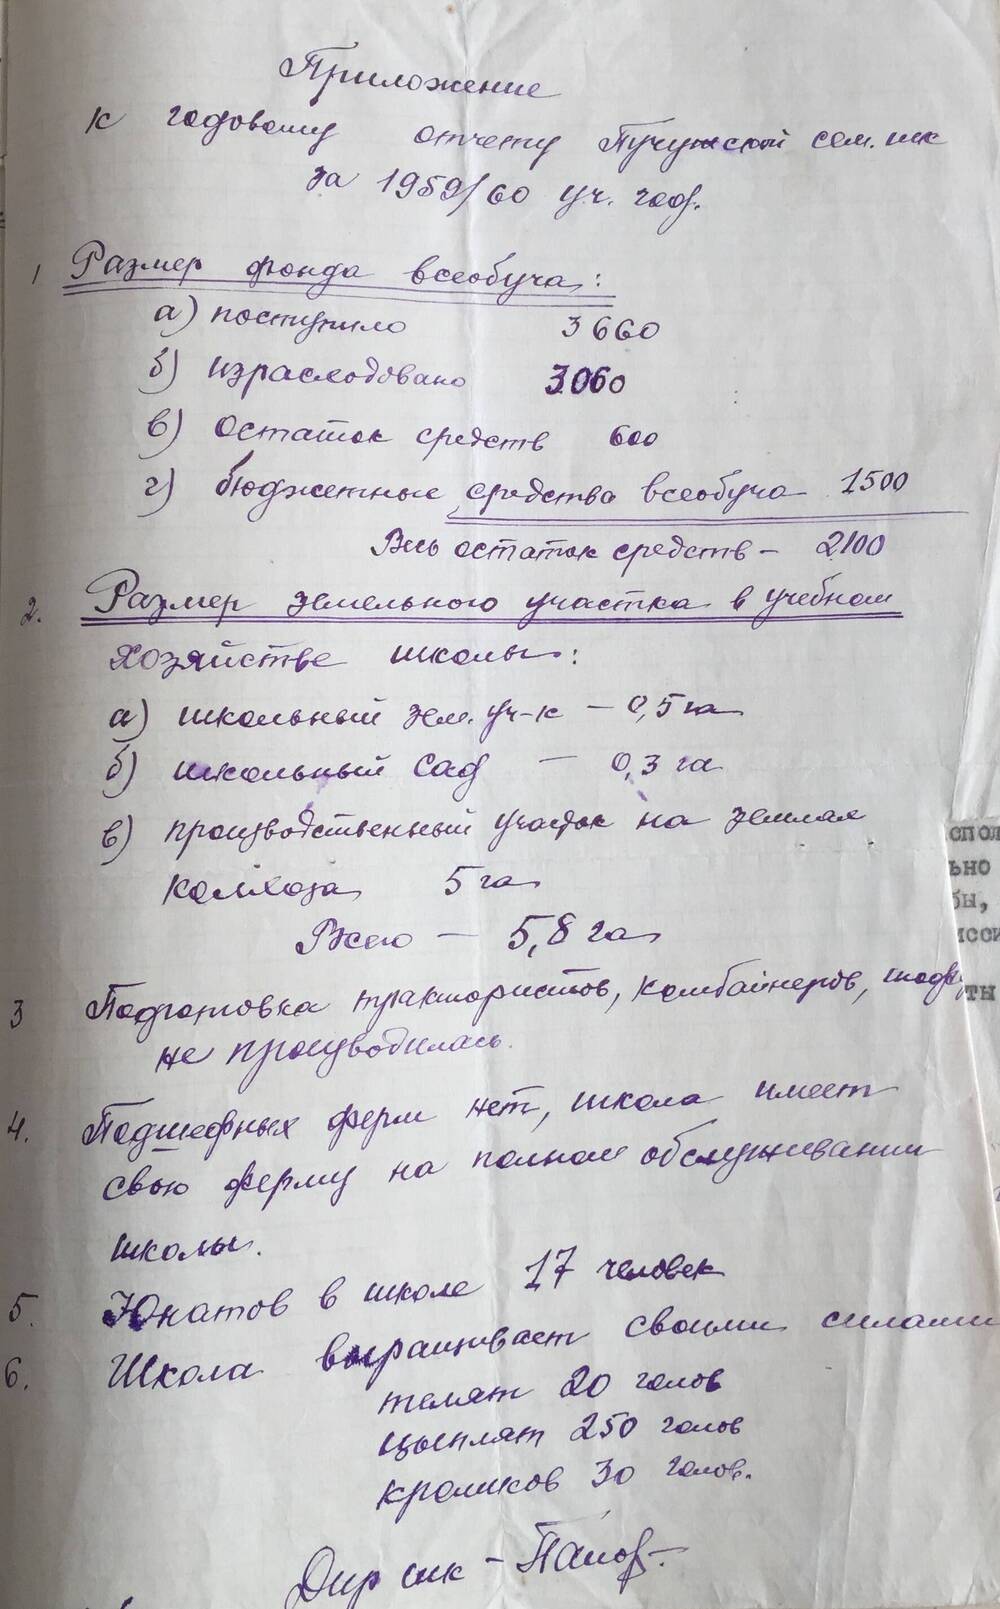 Приложение
к годовому отчету Пучужской сем. шк
за 1959/60 уч. год.
1 Размер фонда всеобуча:
а) поступило 3660
б) израсходовано 3060
в) остаток средств 600
г) бюджетные средства всеобуча 1500
Весь остаток средств - 2100
2. Размер земельного участка в учебном
хозяйстве школы:
а) школьный зем. уч-к - 0,5 га
б) школьный сад - 0,3 га
в) производственный участок на землях
колхоза 5 га
Всего - 5,8 га
3 Подготовка трактористов, комбайнеров,
не производилась.
4. Подшефных ферм нет, школа имеет
свою ферму на полном обслуживании
школы.
5. Юнатов в школе 17 человек
6. Школа выращивает своими силами
телят 20 голов
цыплят 250 голов
кроликов 30 голов.
Дир шк -
спол
ьно
бы,
исси
ты